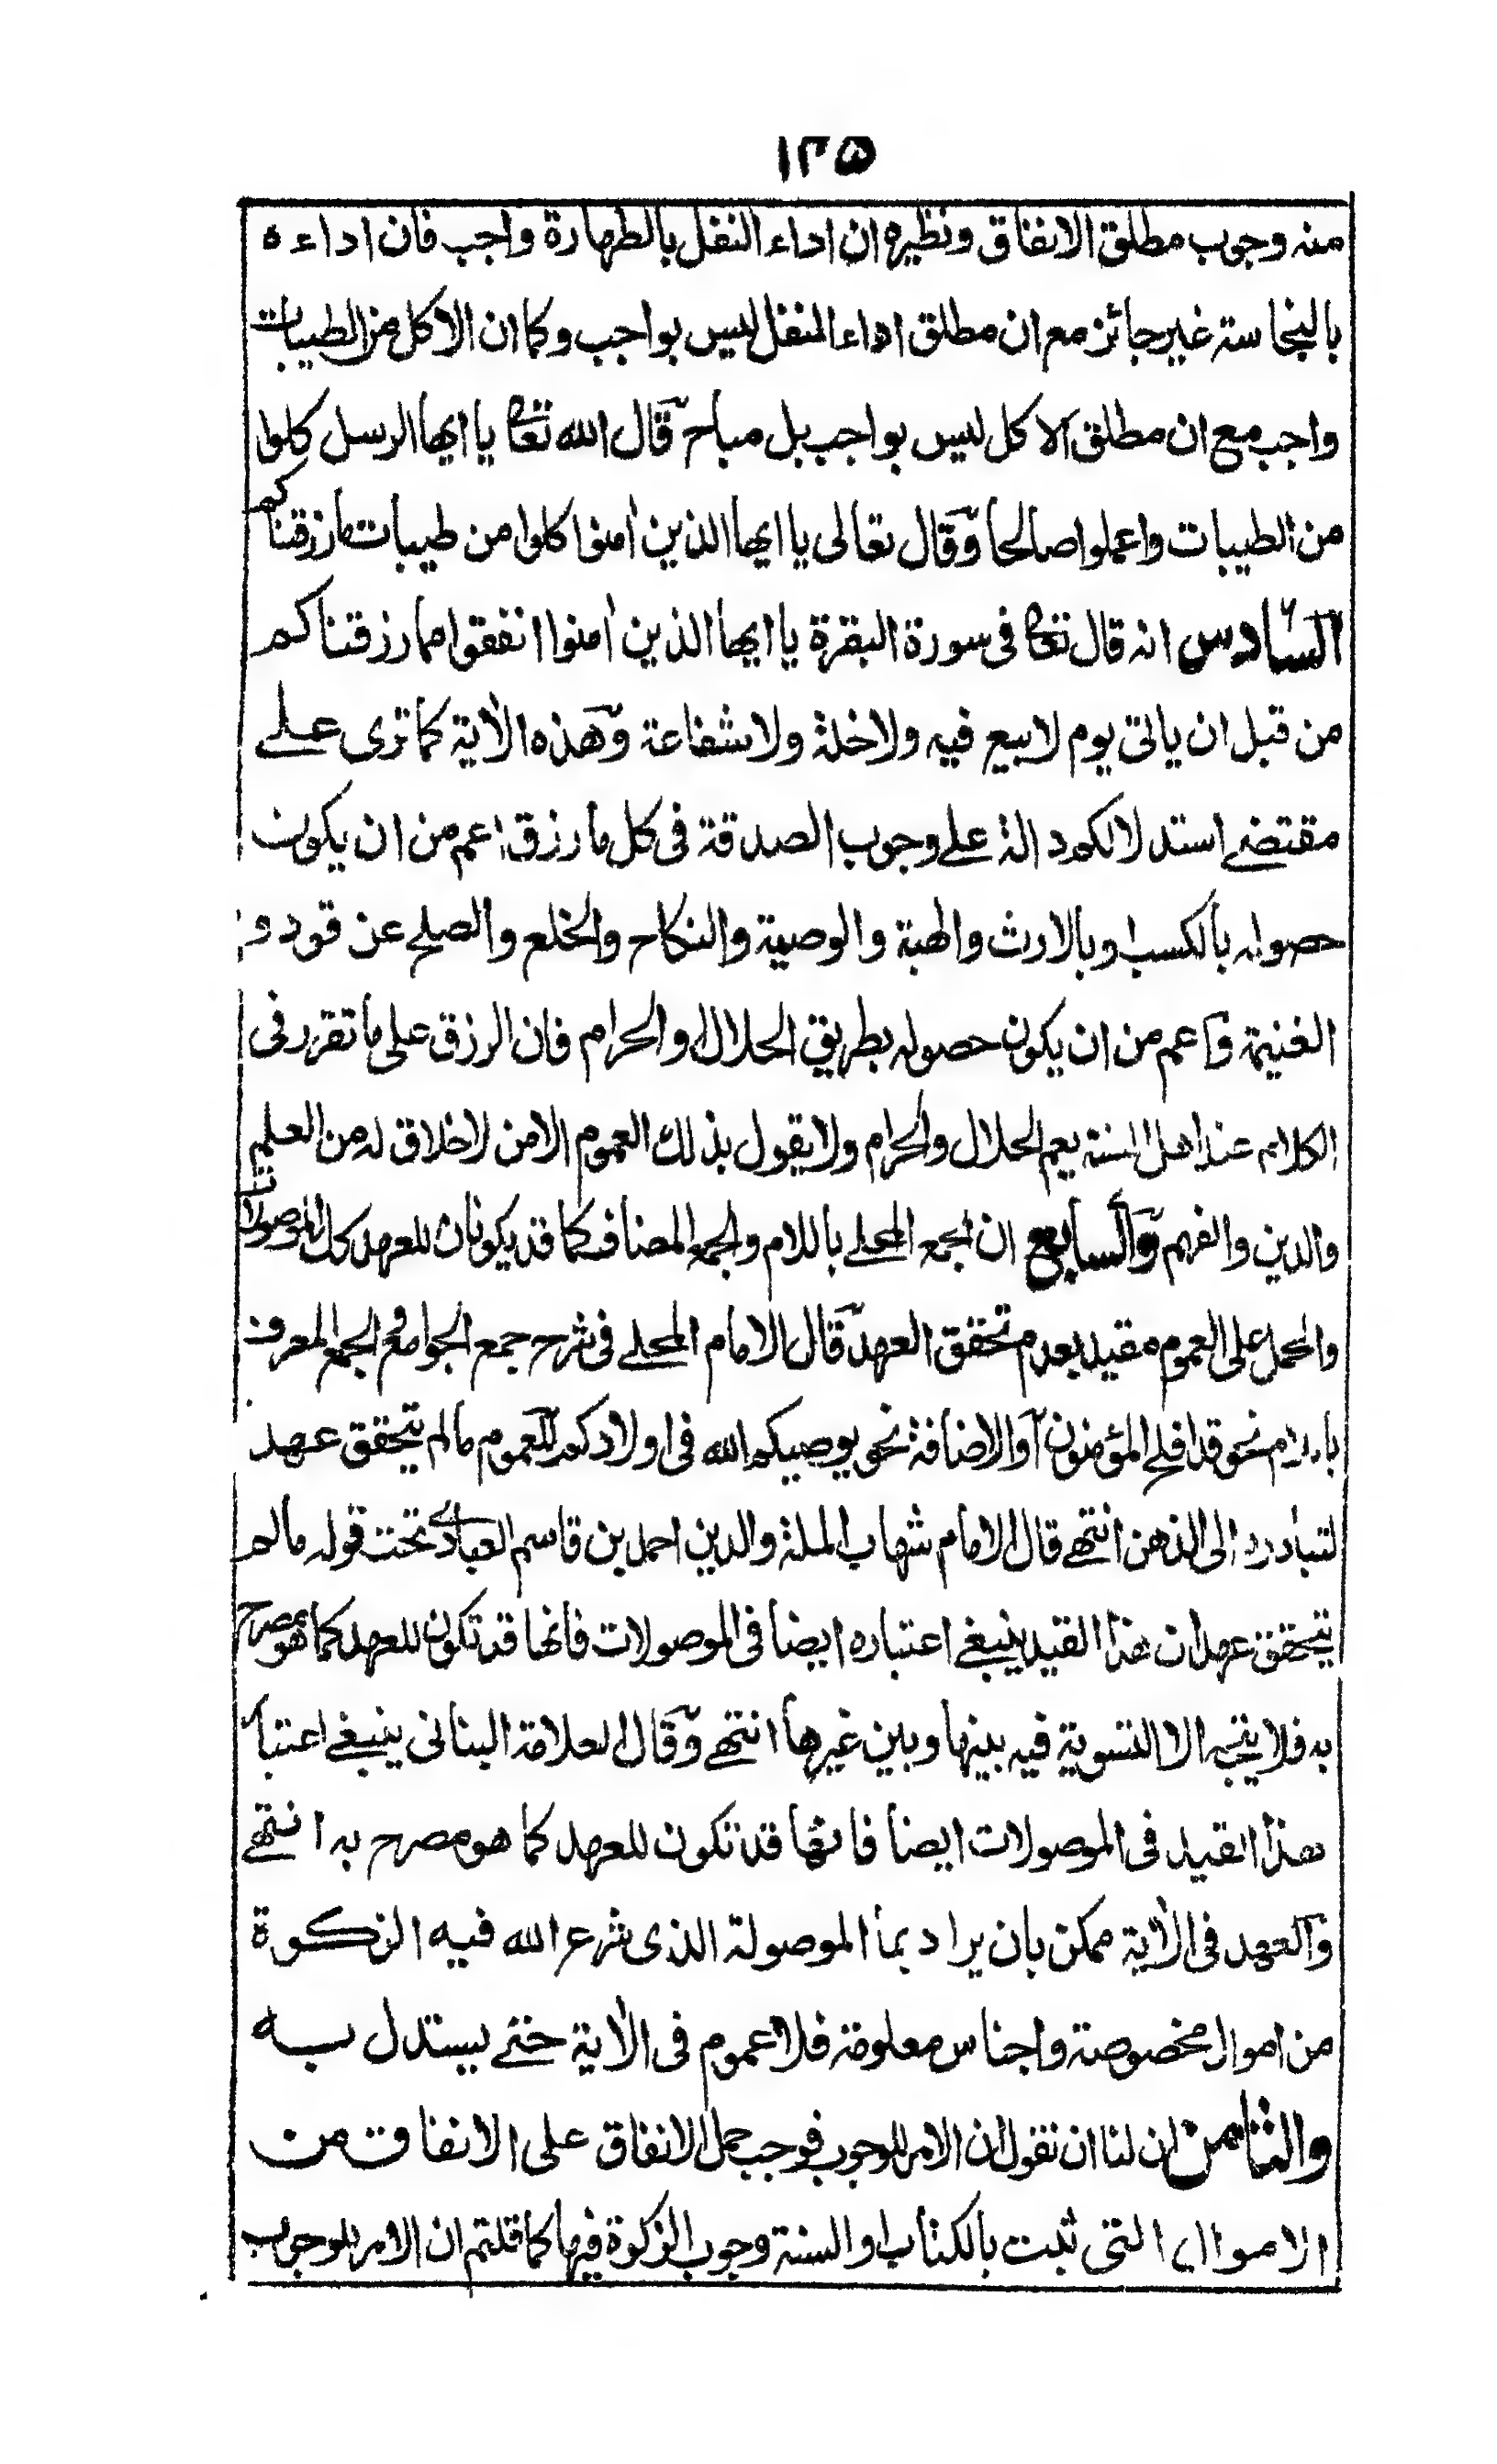 ١٣٥
منه وجوب مطلق الانفاق ونظيره ان اداء النفل بالطهارة واجب فان اداءه
بالنجاسة غير جائز مع ان مطلق اداء النفل ليس بواجب وكما ان الاكل من الطيبات
واجب مع ان مطلق الاكل ليس بواجب بل مباح قال الله تعا يا ايها الرسل كلوا
من الطيبات واعملوا صالحا وقال تعالى يا ايها الذين اٰمنوا كلوا من طيبات ما رزقناكم
السادس انه قال تعا فى سورة البقرة يا ايها الذين اٰمنوا انفقوا مما رزقناكم
من قبل ان ياتى يوم لا بيع فيه ولا خلة ولا شفاعة وهذه الاٰية كما ترى على
مقتضى استدلالكم دالة على وجوب الصدقة فى كل ما رزق اعم من ان يكون
حصوله بالكسب او بالارث والهبة والوصية والنكاح والخلع والصلح عن قود و
الغنيمة واعم من ان يكون حصوله بطريق الحلال والحرام فان الرزق على ما تقرر فى
الكلام عند اهل السنة يعم الحلال والحرام ولا يقول بذلك العموم الا من لا خلاق له من العلم
والدين والفهم والسابع ان الجمع المحلى باللام والجمع المضاف كما قد يكونان للعهد كذلك الموصولات
والحمل على العموم مقيد بعدم تحقق العهد قال الامام المحلى فى شرح جمع الجوامع والجمع المعرف
باللام نحو قد افلح المؤمنون او الاضافة نحو يوصيكم الله فى اولادكم للعموم ما لم يتحقق عهد
لتبادره الى الذهن انتهى قال الامام شهاب الملة والدين احمد بن قاسم العبادى تحت قوله ما لم
يتحقق عهد ان هذا القيد ينبغى اعتباره ايضا فى الموصولات فانها قد تكون للعهد كما هو مصرح
به فلا يتجه الا التسوية فيه بينها وبين غيرها انتهى وقال العلامة البنانى ينبغى اعتبار
هذا القيد فى الموصولات ايضا فانها قد تكون للعهد كما هو مصرح به انتهى
والعهد فى الاٰية ممكن بان يراد بما الموصولة الذى شرع الله فيه الزكوة
من اموال مخصوصة واجناس معلومة فلا عموم فى الاٰية حتى يستدل به
والثامن ان لنا ان نقول ان الامر للوجوب فوجب حمل الانفاق على الانفاق من
الاموال التى ثبت بالكتاب او السنة وجوب الزكوة فيها كما قلتم ان الامر للوجوب